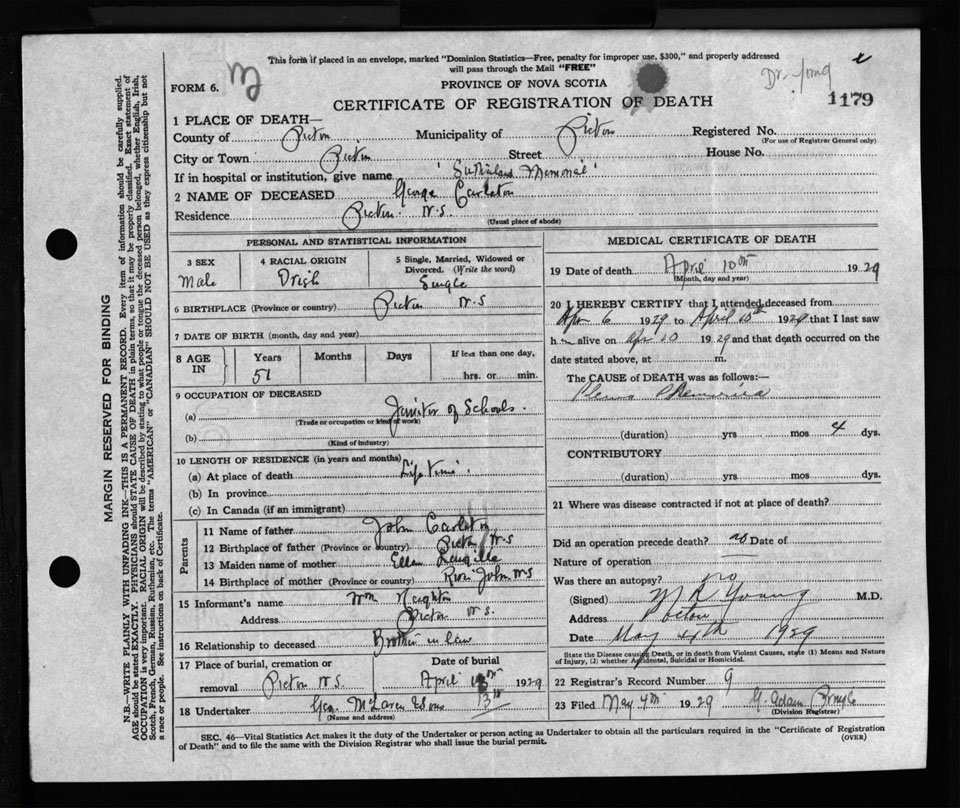 This form if placed in an envelope, marked "Dominion Statistics—Free, penalty for improper use, $300," and properly addressed
will pass through the Mail "FREE"
Dr. Young
FORM 6.
PROVINCE OF NOVA SCOTIA
CERTIFICATE OF REGISTRATION OF DEATH
1179
1 PLACE OF DEATH—
County of Pictou Municipality of Pictou Registered No.
(For use of Registrar General only)
City or Town Pictou Street House No.
If in hospital or institution, give name 'Sutherland Memorial'
2 NAME OF DECEASED George Carleton
Residence Pictou N.S.
(Usual place of abode)
PERSONAL AND STATISTICAL INFORMATION
3 SEX
Male
4 RACIAL ORIGIN
Irish
5 Single, Married, Widowed or
Divorced. (Write the word)
Single
6 BIRTHPLACE (Province or country) Pictou N.S
7 DATE OF BIRTH (month, day and year)
8 AGE
IN
Years
51
Months
Days
If less than one day,
hrs. or min.
9 OCCUPATION OF DECEASED
(a) Janitor of Schools.
(Trade or occupation or kind of work)
(b)
(Kind of industry)
10 LENGTH OF RESIDENCE (in years and months)
(a) At place of death Life Time.
(b) In province
(c) In Canada (if an immigrant)
Parents
11 Name of father John Carleton
12 Birthplace of father (Province or country) Pictou N-S
13 Maiden name of mother Ellen
14 Birthplace of mother (Province or country) River John NS
15 Informant's name Wm
Address Pictou N.S.
16 Relationship to deceased Brother in law
17 Place of burial, cremation or
removal Pictou N.S.
Date of burial
April 1929
13th
18 Undertaker Geo. McLaren & Sons
(Name and address)
MEDICAL CERTIFICATE OF DEATH
19 Date of death April 10th 1929
(Month, day and year)
20 I HEREBY CERTIFY that I attended deceased from
Apr 6 1929 to April 10th 1929 that I last saw
h im alive on Apr 10 1929 and that death occurred on the
date stated above, at m.
The CAUSE of DEATH was as follows:—
Pneumonia
(duration) yrs mos 4 dys.
CONTRIBUTORY
(duration) yrs mos dys.
21 Where was disease contracted if not at place of death?
Did an operation precede death? no Date of
Nature of operation
Was there an autopsy? no
(Signed) M R Young M.D.
Address Pictou
Date May 4th 1929
State the Disease causing Death, or in death from Violent Causes, state (1) Means and Nature
of Injury, (2) whether Accidental, Suicidal or Homicidal.
22 Registrar's Record Number 9
23 Filed May 4th 1929
(Division Registrar)
SEC. 46—Vital Statistics Act makes it the duty of the Undertaker or person acting as Undertaker to obtain all the particulars required in the "Certificate of Registration
of Death" and to file the same with the Division Registrar who shall issue the burial permit.
(OVER)
MARGIN RESERVED FOR BINDING
N.B.—WRITE PLAINLY WITH UNFADING INK—THIS IS A PERMANENT RECORD. Every item of information should be carefully supplied.
AGE should be stated EXACTLY. PHYSICIANS should STATE CAUSE OF DEATH in plain terms, so that it may be properly classified. Exact statement of
OCCUPATION is very important. RACIAL ORIGIN will be described by stating to what people or tongue the deceased person belonged, whether English, Irish,
Scotch, French, German, Russian, Ruthenian, etc. The terms "AMERICAN" or "CANADIAN" SHOULD NOT BE USED as they express citizenship but not
a race or people. See instructions on back of Certificate.